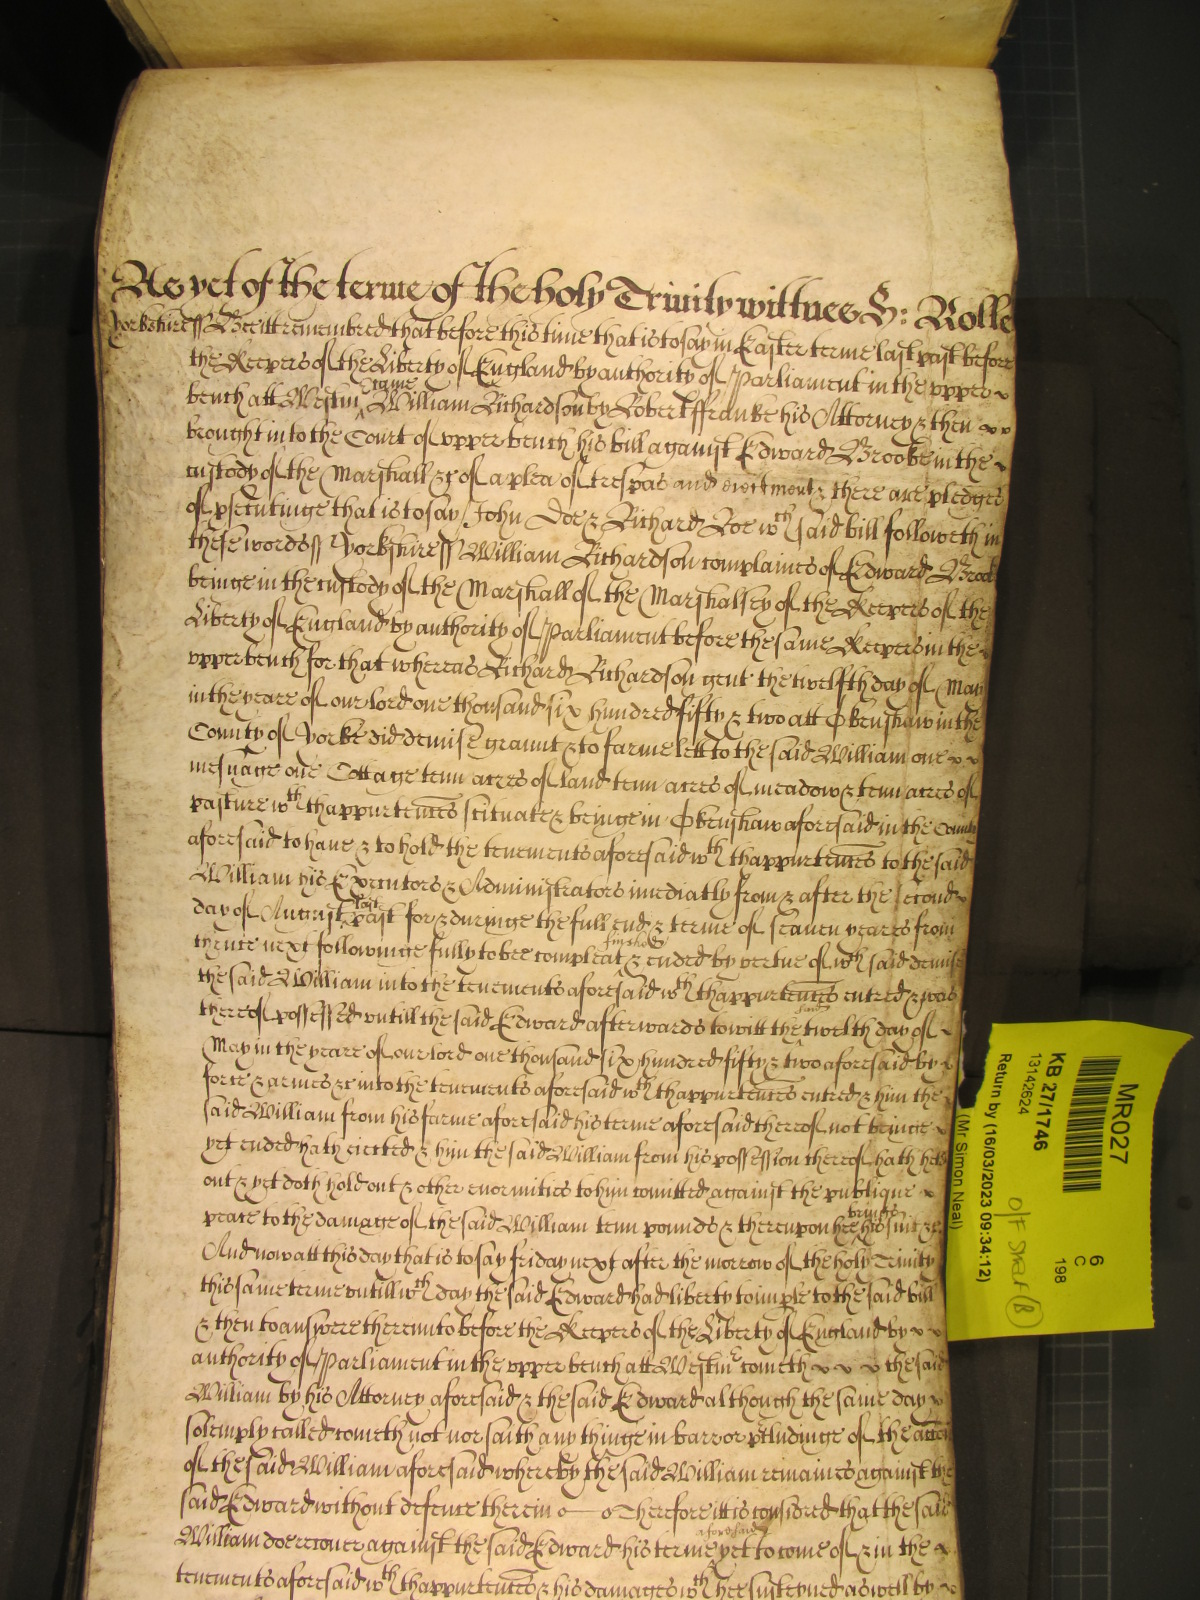 As yet of the terme of the holy Trinity wittnes H: Rolle
Yorkshire ss Bee itt remembred that before this time that is to say in Easter terme last past before
the Keepers of the Liberty of England by authority of Parliament in the upper
bench att Westm came William Richardson by Robert ffranke his Attorney & then
brought into the Court of upper bench his bill against Edward Brooke in the
custody of the Marshall &c of a plea of trespas and eiectment & there are pledges
of psecutinge that is to say John Doe & Richard Roe wch said bill followeth in
these words ss Yorkshire ss William Richardson complaines of Edward Brook
beinge in the custody of the Marshall of the Marshalsey of the Keepers of the
Liberty of England by authority of Parliament before the same Keepers in the
upper bench for that whereas Richard Richardson gent the twelfth day of May
in the yeare of our lord one thousand six hundred fifty & two att Okenshaw in the
County of Yorke did demise graunt & to farme lett to the said William one
mesuage one Cottage tenn acres of land tenn acres of meadow & tenn acres of
pasture wth thappurtences scituate & beinge in Okenshaw aforesaid in the County
aforesaid to haue & to hold the tenements aforesaid wth thappurtences to the said
William his Executors & Administrators imediatly from & after the second
day of August last past for & duringe the full end & terme of seauen yeares from
thence next followinge fully to bee compleat finished & ended by vertue of wch said demise
the said William into the tenements aforesaid wth thappurtences entred & was
thereof possessed untill the said Edward afterwards to witt the same twelth day of
May in the yeare of our lord one thousand six hundred fifty & two aforesaid by
force & armes &c into the tenements aforesaid wth thappurtences entred & him the
said William from his farme aforesaid his terme aforesaid thereof not beinge
yet ended hath eiected & him the said William from his possession thereof hath held
out & yet doth hold out & other enormities to him comitted against the publique
peace to the damage of the said William tenn pounds & thereupon hee brings his suit &c
And now att this day that is to say friday next after the morrow of the holy Trinity
this same terme untill wch day the said Edward had liberty to imple to the said bill
& then to answere thereunto before the Keepers of the Liberty of England by
authority of Parliament in the upper bench att Westm cometh the said
William by his Attorney aforesaid & the said Edward although the same day
solemply called cometh not nor saith any thinge in barr or pcludinge of the accon
of the said William aforesaid whereby the said William remaines against the
said Edward without defence therein Therefore itt is considred that the said
William doe recouer against the said Edward his terme aforesaid yet to come of & in the
tenements aforesaid wth thappurtences & his damages wch hee susteyned as well by
MR027
6
C
198
KB 27/1746
13142624
Return by (16/03/2023 09:34:12)
(Mr Simon Neal)